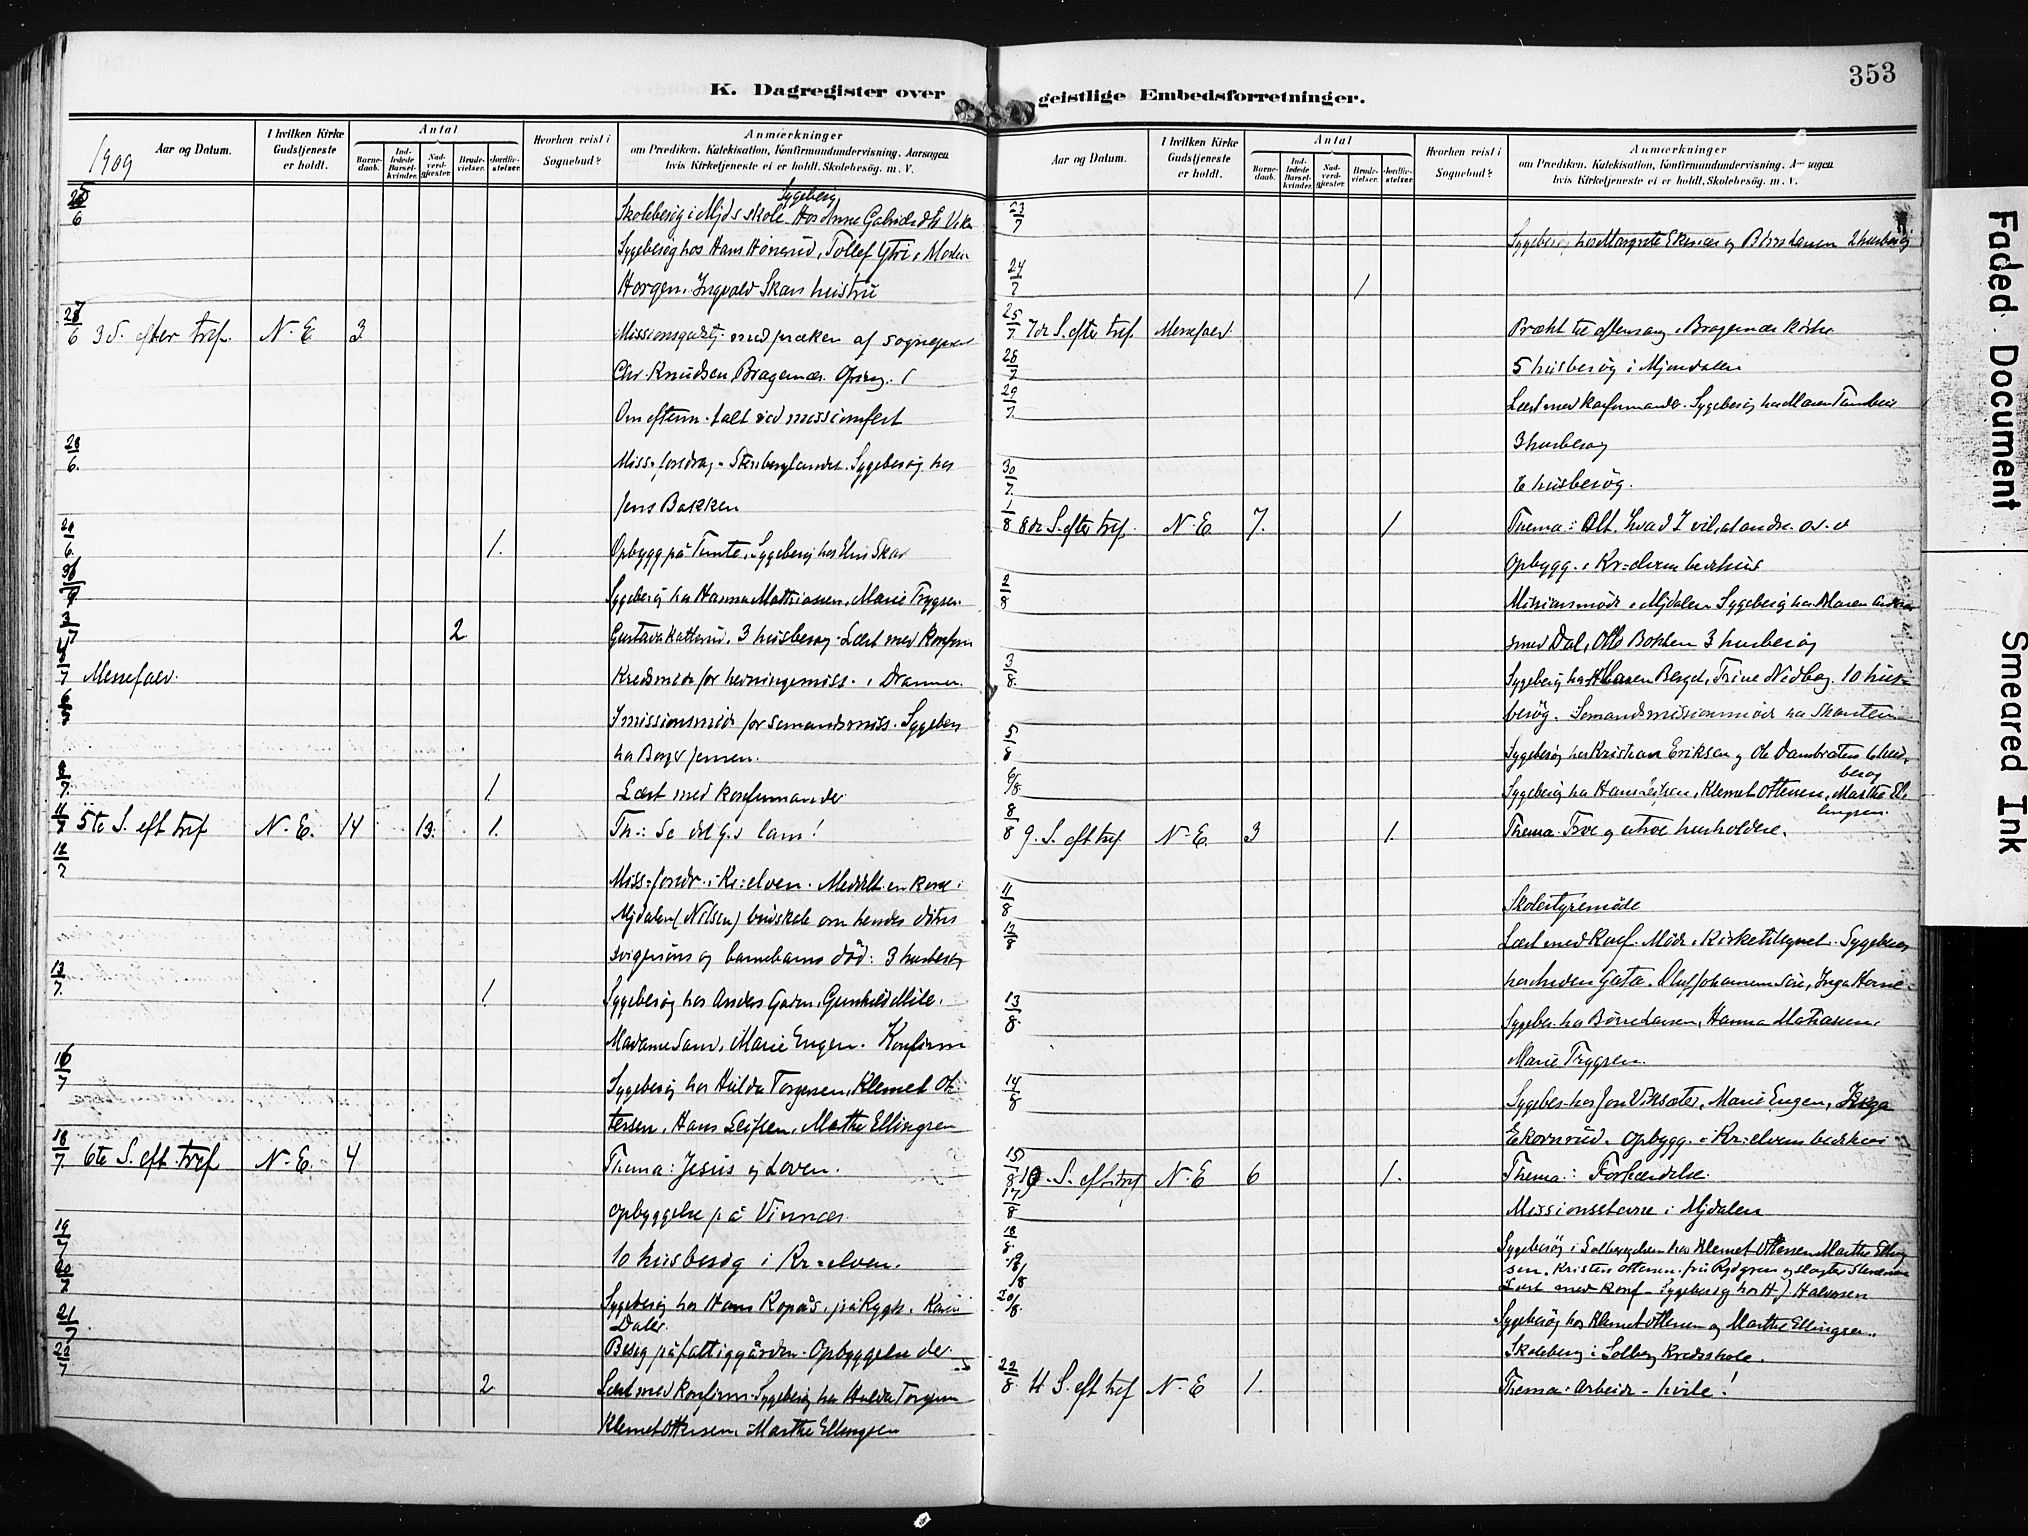 353
K. Dagregister over geistlige Embedsforretninger.
1909
Aar og Datum.
I hvilken Kirke Gudstjeneste er holdt.
Antal
Barnedaab.
Indledede Barselkvinder.
Nadverdgjester.
Brudevielser.
Jordfæstelser.
Hvorhen reist i Sognebud?
Anmærkninger
om Prædiken, Katekisation, Konfirmandundervisning, Aarsagen
hvis Kirketjeneste ei er holdt, Skolebesøg. m. V.
Sygebesøg
6 Skolebesøg i Mjds skole. Hos Anne
Sygebesøg hos Hans Horgerud, Tollef
Horgen, Ingvald Skars hustru
6 3 S. efter tref. N. E 3 Missionsgudstj. med præken af sognepræst
Chr. Knudsen Bragernæs.
Om efterm. talt ved missionsfest
28/6. Miss. foredrag. Sygebesøg hos
Jens Bakken
6. 1. Opbygg på Tomte, Sygebesøg hos Elen Skar
Sygebesøg hos Hanna Mathiassen, Marie Trygsen.
3/7 2 3 husbesøg. Læst med konfirm
7 Messefald. Kredsmøde for hedningemiss. i Drammen.
missionsmøde for sømandsmiss. Sygebes
hos Borger Jensen.
8/7. 1. Læst med konfirmander
11/7 5te S. eft tref N. E. 14 13. 1. Th: Se det G.s lam!
12/7 Miss. foredr. i Kr=elven. Meddelt en kone i
Mjdalen (Nilsen) budskab om hendes
svigersøns og barnebarns död: 3 husbesøg
13/7. 1 Sygebesøg hos Anders Garen, Gunhild Mile,
Madame Sam, Marie Engen. Konfirm
16/7 Sygebesøg hos Hulda Torgersen, Klemet Ot
tersen, Hans Leifsen, Marthe Ellingsen
18/7. 6te S. eft. tref N. E. 4 Thema: Jesus og Loven.
Opbyggelse på Vinnæs
19/7 10 husbesøg i Kr=elven.
20/7 Sygebesøg hos Hans Kopås, på Rygh, Karen
Daler.
21/7 Besøg på fattiggården. Opbyggelse der.
22/7 2 Læst med konfirm. Sygebesøg hos Hulda Torgersen
Klemet Ottersen, Marthe Ellingsen
Aar og Datum.
I hvilken Kirke Gudstjeneste er holdt.
Antal
Barnedaab.
Indledede Barselkvinder.
Nadverdgjester.
Brudevielser.
Jordfæstelser
Hvorhen reist i Sognebud?
Anmærkninger
om Prædiken, Katekisation, Konfirmandundervisning, Aarsagen
hvis Kirketjeneste ei er holdt, Skolebesøg. m. V.
23/7 Sygebesøg hos Margrete Ekenæs og Børre Larsen 2 husbesøg
24/7 1
25/7 7de S. efter tref. Messefald. Præket til aftensang i Bragernæs kirke
28/7 5 husbesøg i Mjøndalen
29/7 Læst med konfirmander. Sygebesøg hos Maren
3 husbesøg
30/7. 6 husbesøg.
1/8 8de S. efter tref. N. E. 7. 1 Thema: Alt, hvad I vil, at andre o. s. v
Opbygg. i Kr=elvens bedehus
2/8 Missionsmøde i Mjdalen Sygebesøg hos Maren
smed Dal, Otto Bakken 3 husbesøg
3/8. Sygebesøg hos Maren Berget, Trine Nedbag. 10 hus=
besøg. Sømandsmissionsmøde hos
5/8 Sygebesøg hos Kristian Eriksen og Ole Dambråten 6 hus=
besøg
6/8. Sygebesøg hos Hans Leifsen, Klemet Ottersen, Marthe El=
lingsen.
8/8 9. S. eft tref. N. E. 3 1 Thema. Tro og utro husholdere.
11/8 Skolestyremøde
12/8 Læst med Konf. Møde i Kirketilsynet. Sygebesøg
hos Gata. Oluf Johannessen
13/8. Sygebes. hos Børre Larsen, Hanna Mathiassen,
Marie Trygsen.
14/8 Sygebes. hos Jon Viksæter, Marie Engen, Inga
Ekornrud. Opbygg. i Kr=elvens bedehus
15/8 10 S. eft. tref N. E 6 1. Thema: Forhærdelse.
17/8 Missionsstævne i Mjdalen
18/8. Sygebesøg i Solbergelven hos Klemet Ottersen Marthe Elling
sen, Kristen Ottersen, fru Rydgren og slagter
19/8 Læst med konf. Sygebesøg hos H. J Halvorsen
20/8. Sygebesøg hos Klemet Ottersen og Marthe Ellingsen.
Skolebesøg i Solberg Kredsskole.
22/8. 11 S. eft tref N. E 1. Thema: Arbeide - hvile!
Faded Document
Smeared Ink